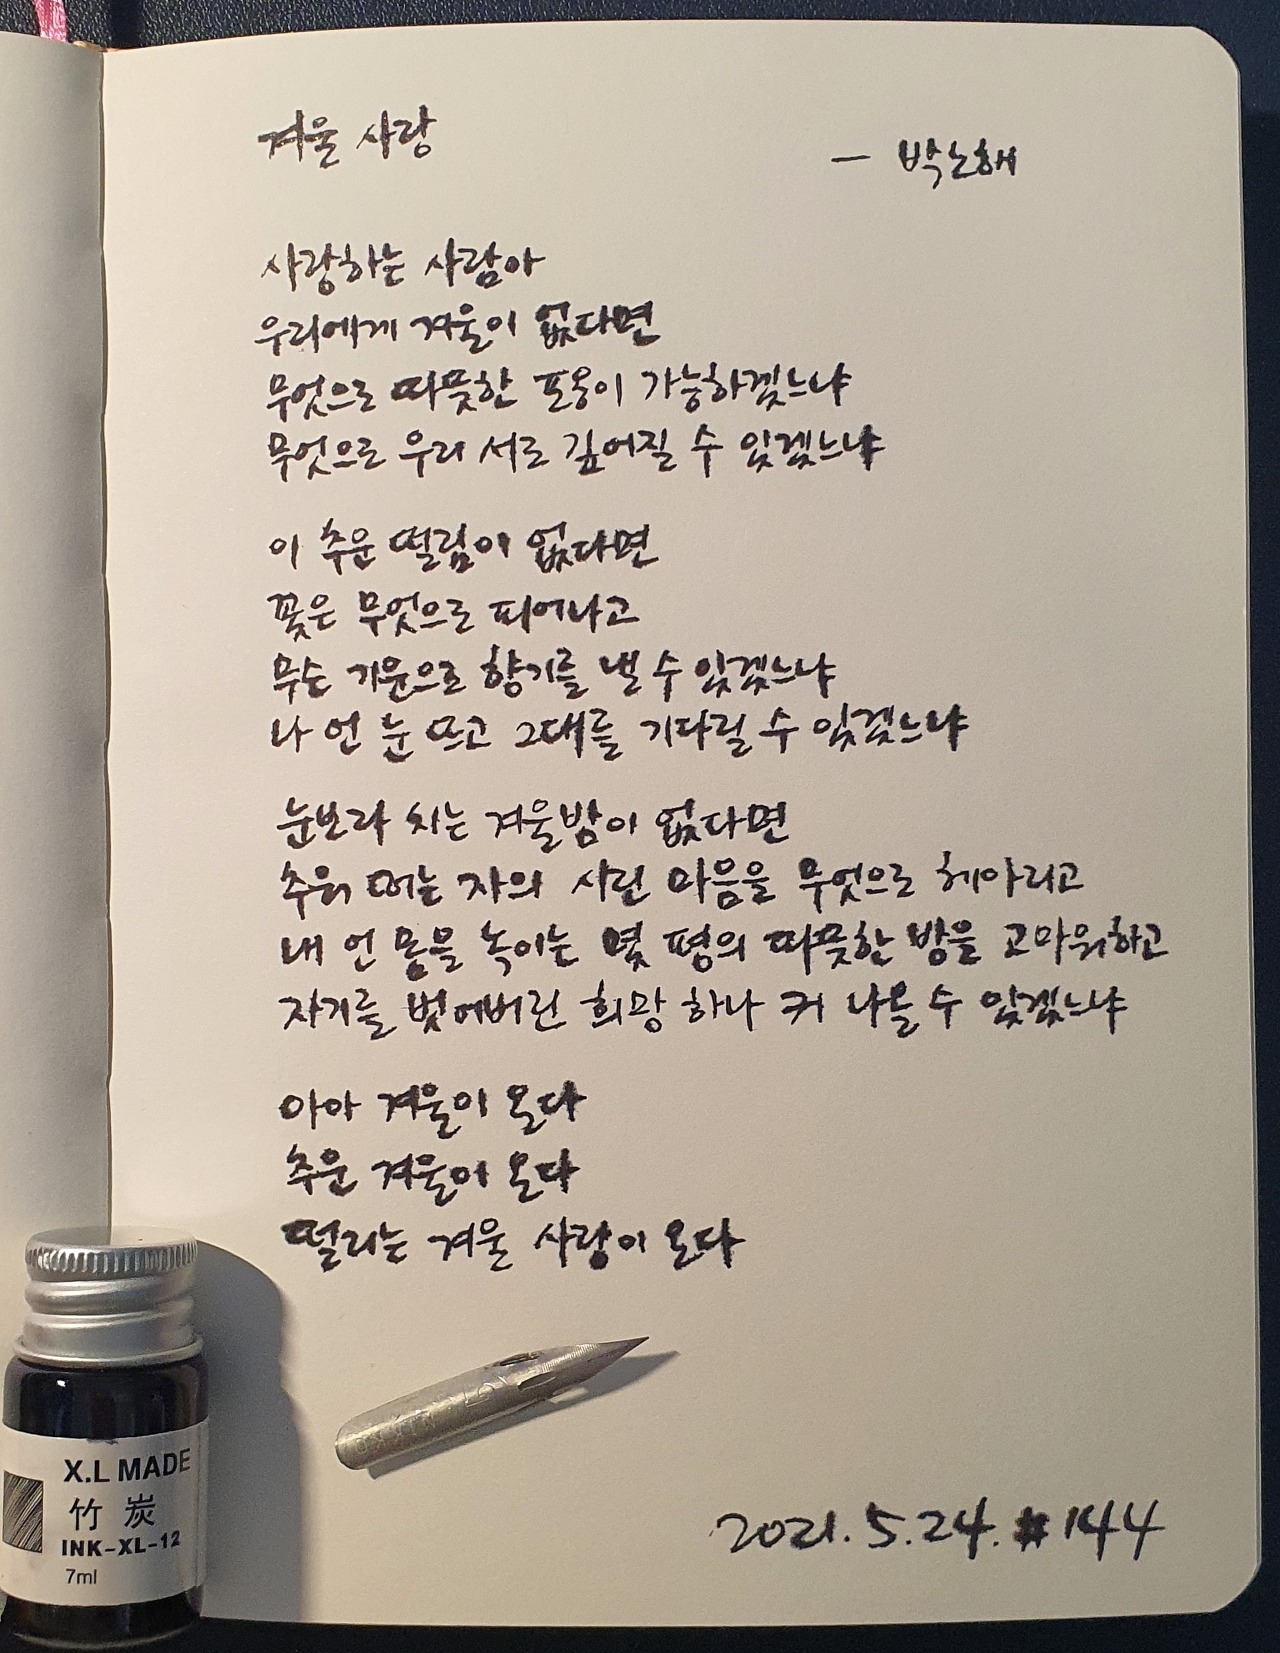 겨울 사랑
- 박노해
사랑하는 사람아
우리에게 겨울이 없다면
무엇으로 따뜻한 포옹이 가능하겠느냐
무엇으로 우리 서로 깊어질 수 있겠느냐
이 추운 떨림이 없다면
꽃은 무엇으로 피어나고
무슨 기운으로 향기를 낼 수 있겠느냐
나 언 눈 뜨고 그대를 기다릴 수 있겠느냐
눈보라 치는 겨울밤이 없다면
추워 떠는 자의 시린 마음을 무엇으로 헤아리고
내 언 몸을 녹이는 몇 평의 따뜻한 방을 고마워하고
자기를 벗어버린 희망 하나 커 나올 수 있겠느냐
아아 겨울이 온다
추운 겨울이 온다
떨리는 겨울 사랑이 온다
X.L MADE
竹炭
INK-XL-12
7ml
2021.5.24. #144